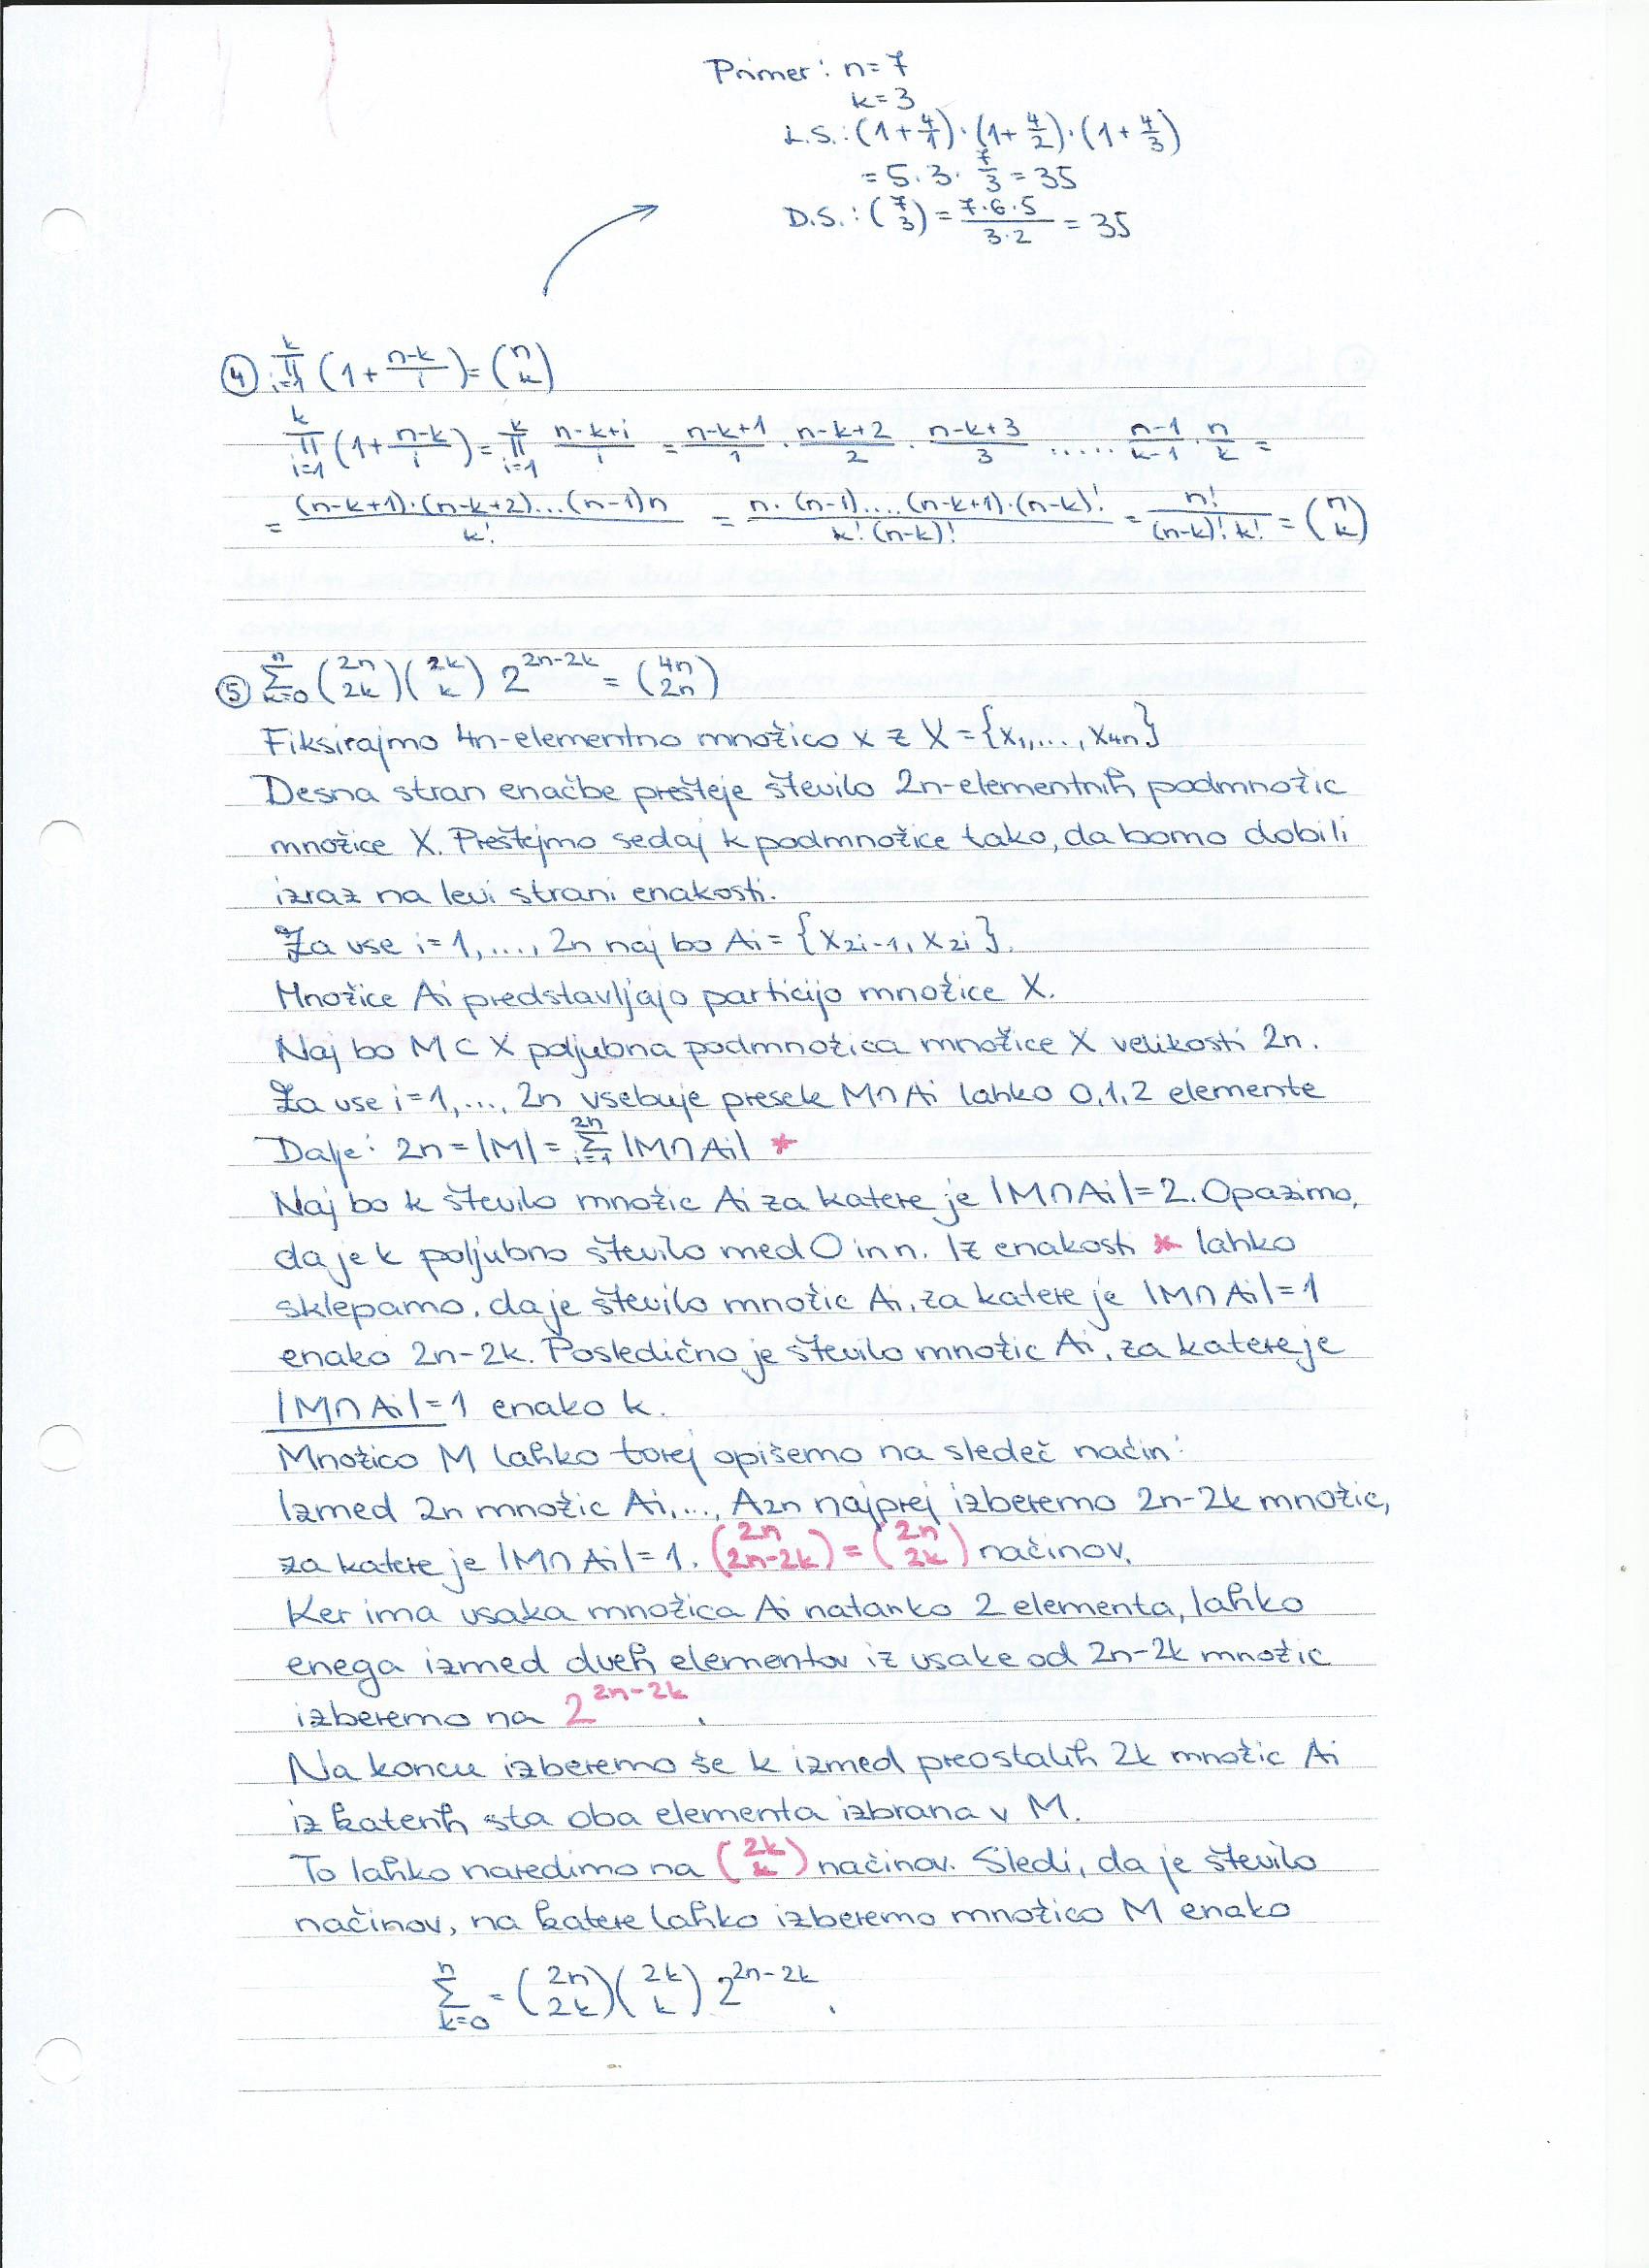 Primer: n=7
k=3
L.S.: (1+4/1)·(1+4/2)·(1+4/3)
=5·3·7/3=35
D.S.: (7 3) = 7·6·5/3·2 = 35
④ ∏_{i=1}^{k} (1+ (n-k)/i) = (n k)
∏_{i=1}^{k} (1+ (n-k)/i) = ∏_{i=1}^{k} (n-k+i)/i = (n-k+1)/1 · (n-k+2)/2 · (n-k+3)/3 ..... (n-1)/(k-1) · n/k =
= (n-k+1)·(n-k+2)...(n-1)n / k! = n·(n-1)....(n-k+1)·(n-k)! / k!(n-k)! = n! / (n-k)! k! = (n k)
⑤ ∑_{k=0}^{n} (2n 2k)(2k k) 2^{2n-2k} = (4n 2n)
Fiksirajmo 4n-elementno množico x z X={x₁,...,x₄ₙ}
Desna stran enačbe prešteje število 2n-elementnih podmnožic
množice X. Preštejmo sedaj k podmnožice tako, da bomo dobili
izraz na levi strani enakosti.
Za vse i=1,...,2n naj bo Ai={x_{2i-1}, x_{2i}}.
Množice Ai predstavljajo particijo množice X.
Naj bo M⊂X poljubna podmnožica množice X velikosti 2n.
Za vse i=1,..., 2n vsebuje presek M∩Ai lahko 0,1,2 elemente
Dalje: 2n=|M|= ∑_{i=1}^{2n} |M∩Ai| *
Naj bo k število množic Ai za katere je |M∩Ai|=2. Opazimo,
da je k poljubno število med 0 in n. Iz enakosti * lahko
sklepamo, da je število množic Ai, za katere je |M∩Ai|=1
enako 2n-2k. Posledično je število množic Ai, za katere je
|M∩Ai|=1 enako k.
Množico M lahko torej opišemo na sledeč način:
Izmed 2n množic Ai,..., A2n najprej izberemo 2n-2k množic,
za katere je |M∩Ai|=1. (2n 2n-2k) = (2n 2k) načinov.
Ker ima vsaka množica Ai natanko 2 elementa, lahko
enega izmed dveh elementov iz vsake od 2n-2k množic
izberemo na 2^{2n-2k}.
Na koncu izberemo še k izmed preostalih 2k množic Ai
iz katerih sta oba elementa izbrana v M.
To lahko naredimo na (2k k) načinov. Sledi, da je število
načinov, na katere lahko izberemo množico M enako
∑_{k=0}^{n} = (2n 2k)(2k k) 2^{2n-2k}.